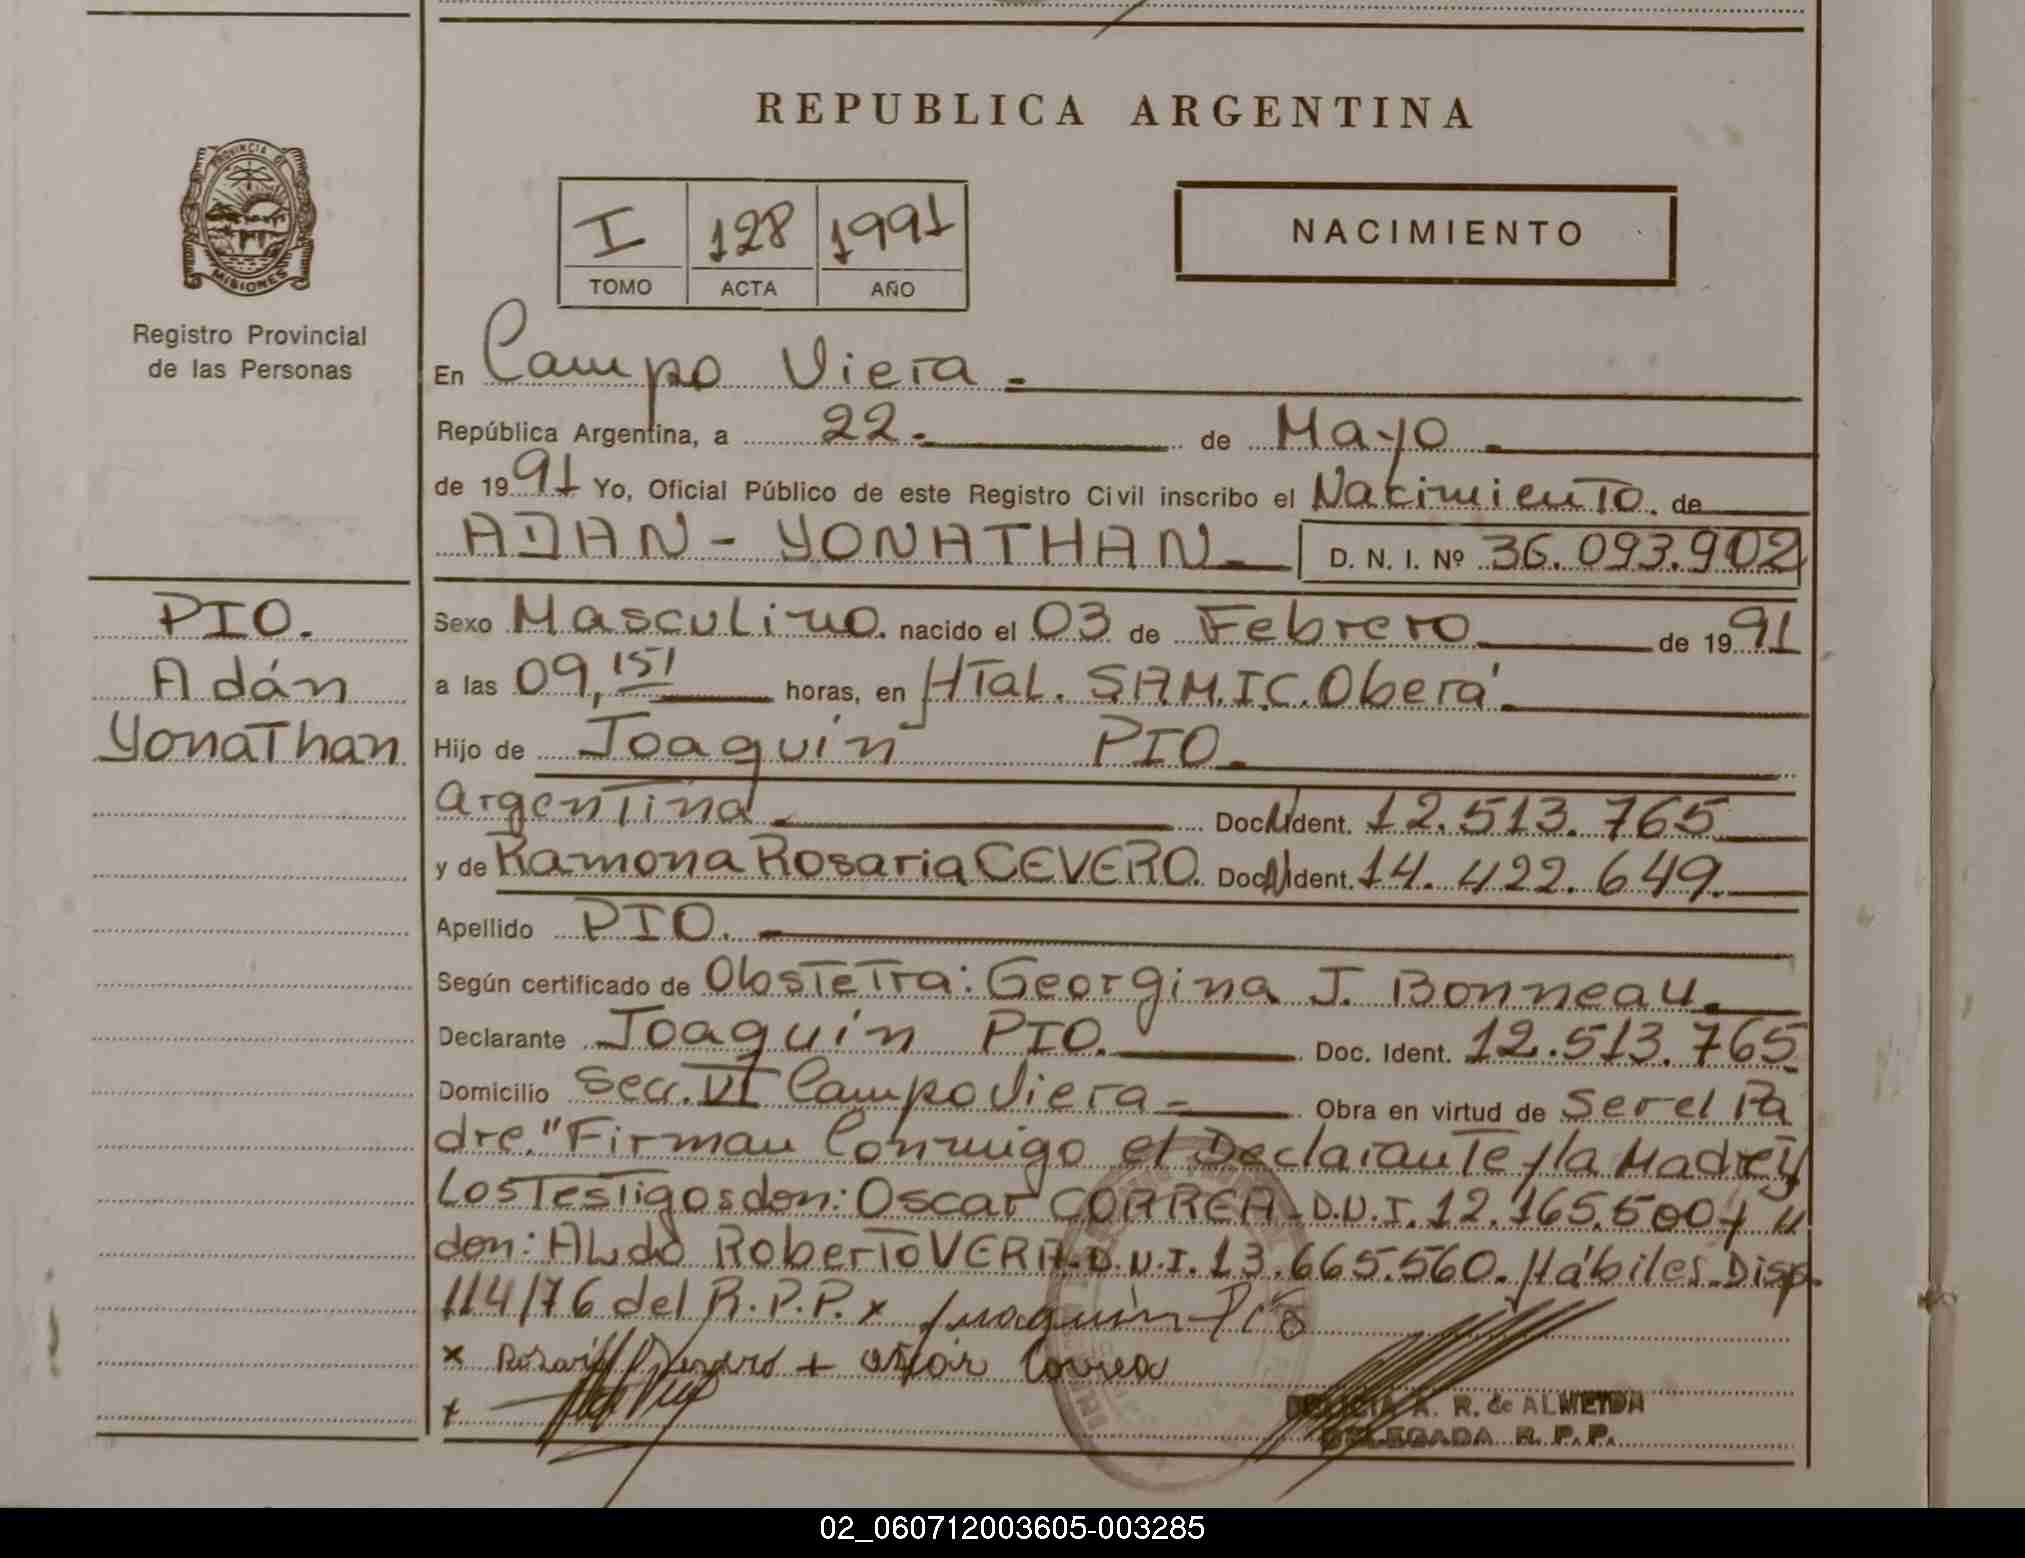 REPUBLICA ARGENTINA
PROVINCIA DE
MISIONES
Registro Provincial
de las Personas
I 128 1991
TOMO ACTA AÑO
NACIMIENTO
En Campo Viera
República Argentina, a 22 de Mayo
de 1991 Yo, Oficial Público de este Registro Civil inscribo el Nacimiento de
ADAN - YONATHAN D. N. I. Nº 36.093.902
PIO.
Adán
Yonathan
Sexo Masculino. nacido el 03 de Febrero de 1991
a las 09,15 horas, en HTal. S.A.M.I.C. Oberá
Hijo de Joaquín PIO.
Argentina Doc. Ident. 12.513.765
y de Ramona Rosaria CEVERO. Doc. Ident. 14.422.649.
Apellido PIO.
Según certificado de Obstetra: Georgina J. Bonneau.
Declarante Joaquín PIO. Doc. Ident. 12.513.765
Domicilio Secc. VI Campo Viera - Obra en virtud de Ser el Pa
dre." Firman Conmigo el Declarante y la Madre y
Los Testigos don: Oscar CORREA - D.N.I. 12.165.500 y
don: Aldo Roberto VERA. D.N.I. 13.665.560. Hábiles. Disp.
114/76 del R.P.P. x Juaquin Pio
x Rosaria + Oscar Correa
+
A. R. de ALMEIDA
DELEGADA R. P. P.
02_060712003605-003285